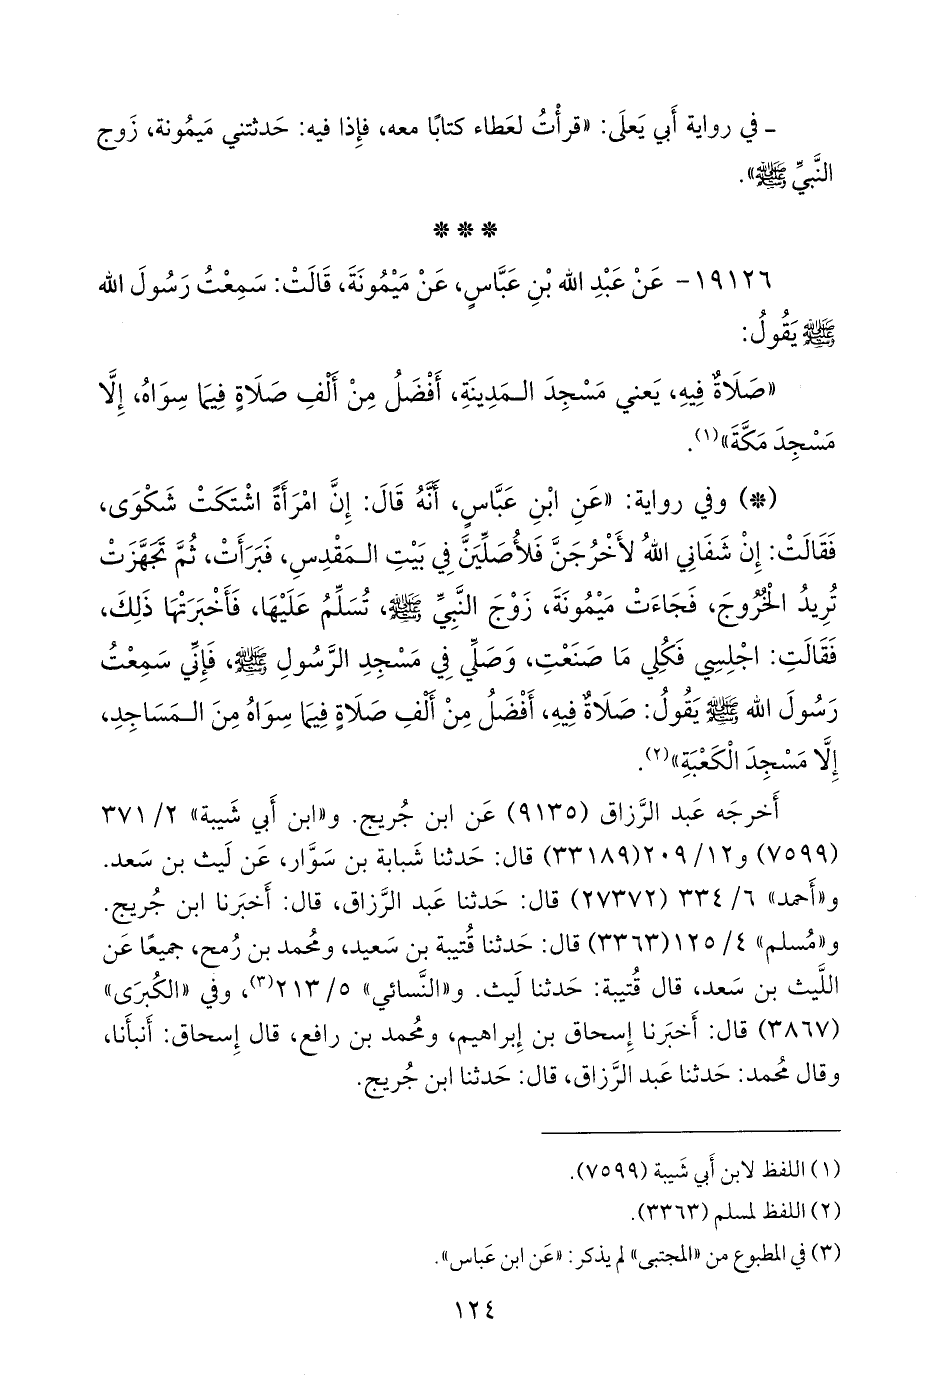 ـ في رواية أَبي يَعلَى: «قرأْتُ لعَطاء كتابًا معه، فإِذا فيه: حَدثتني مَيمُونة، زَوج
النَّبيِّ ﷺ».
* * *
١٩١٢٦- عَنْ عَبْدِ الله بْنِ عَبَّاسٍ، عَنْ مَيْمُونَةَ، قَالَتْ: سَمِعْتُ رَسُولَ الله
ﷺ يَقُولُ:
«صَلَاةٌ فِيهِ، يَعني مَسْجِدَ الـمَدِينَةِ، أَفْضَلُ مِنْ أَلْفِ صَلَاةٍ فِيمَا سِوَاهُ، إِلَّا
مَسْجِدَ مَكَّةَ»(١).
(*) وفي رواية: «عَنِ ابْنِ عَبَّاسٍ، أَنَّهُ قَالَ: إِنَّ امْرَأَةً اشْتَكَتْ شَكْوَى،
فَقَالَتْ: إِنْ شَفَانِي اللهُ لأَخْرُجَنَّ فَلأُصَلِّيَنَّ فِي بَيْتِ الـمَقْدِسِ، فَبَرَأَتْ، ثُمَّ تَجَهَّزَتْ
تُرِيدُ الْخُرُوجَ، فَجَاءَتْ مَيْمُونَةَ، زَوْجَ النَّبِيِّ ﷺ، تُسَلِّمُ عَلَيْهَا، فَأَخْبَرَتْهَا ذَلِكَ،
فَقَالَتِ: اجْلِسِي فَكُلِي مَا صَنَعْتِ، وَصَلِّي فِي مَسْجِدِ الرَّسُولِ ﷺ، فَإِنِّي سَمِعْتُ
رَسُولَ الله ﷺ يَقُولُ: صَلَاةٌ فِيهِ، أَفْضَلُ مِنْ أَلْفِ صَلَاةٍ فِيمَا سِوَاهُ مِنَ الـمَسَاجِدِ،
إِلَّا مَسْجِدَ الْكَعْبَةِ»(٢).
أَخرجَه عَبد الرَّزاق (٩١٣٥) عَن ابن جُريج. و«ابن أَبي شَيبة» ٢/ ٣٧١
(٧٥٩٩) و١٢/ ٢٠٩(٣٣١٨٩) قال: حَدثنا شَبابة بن سَوَّار، عَن لَيث بن سَعد.
و«أَحمد» ٦/ ٣٣٤ (٢٧٣٧٢) قال: حَدثنا عَبد الرَّزاق، قال: أَخبَرنا ابن جُريج.
و«مُسلم» ٤/ ١٢٥(٣٣٦٣) قال: حَدثنا قُتيبة بن سَعيد، ومُحمد بن رُمح، جميعًا عَن
اللَّيث بن سَعد، قال قُتيبة: حَدثنا لَيث. و«النَّسائي» ٥/ ٢١٣(٣)، وفي «الكُبرَى»
(٣٨٦٧) قال: أَخبَرنا إِسحاق بن إِبراهيم، ومُحمد بن رافع، قال إِسحاق: أَنبأَنا،
وقال مُحمد: حَدثنا عَبد الرَّزاق، قال: حَدثنا ابن جُريج.
(١) اللفظ لابن أَبي شَيبة (٧٥٩٩).
(٢) اللفظ لمسلم (٣٣٦٣).
(٣) في المطبوع من «المجتبى» لم يذكر: «عَن ابن عَباس».
١٢٤